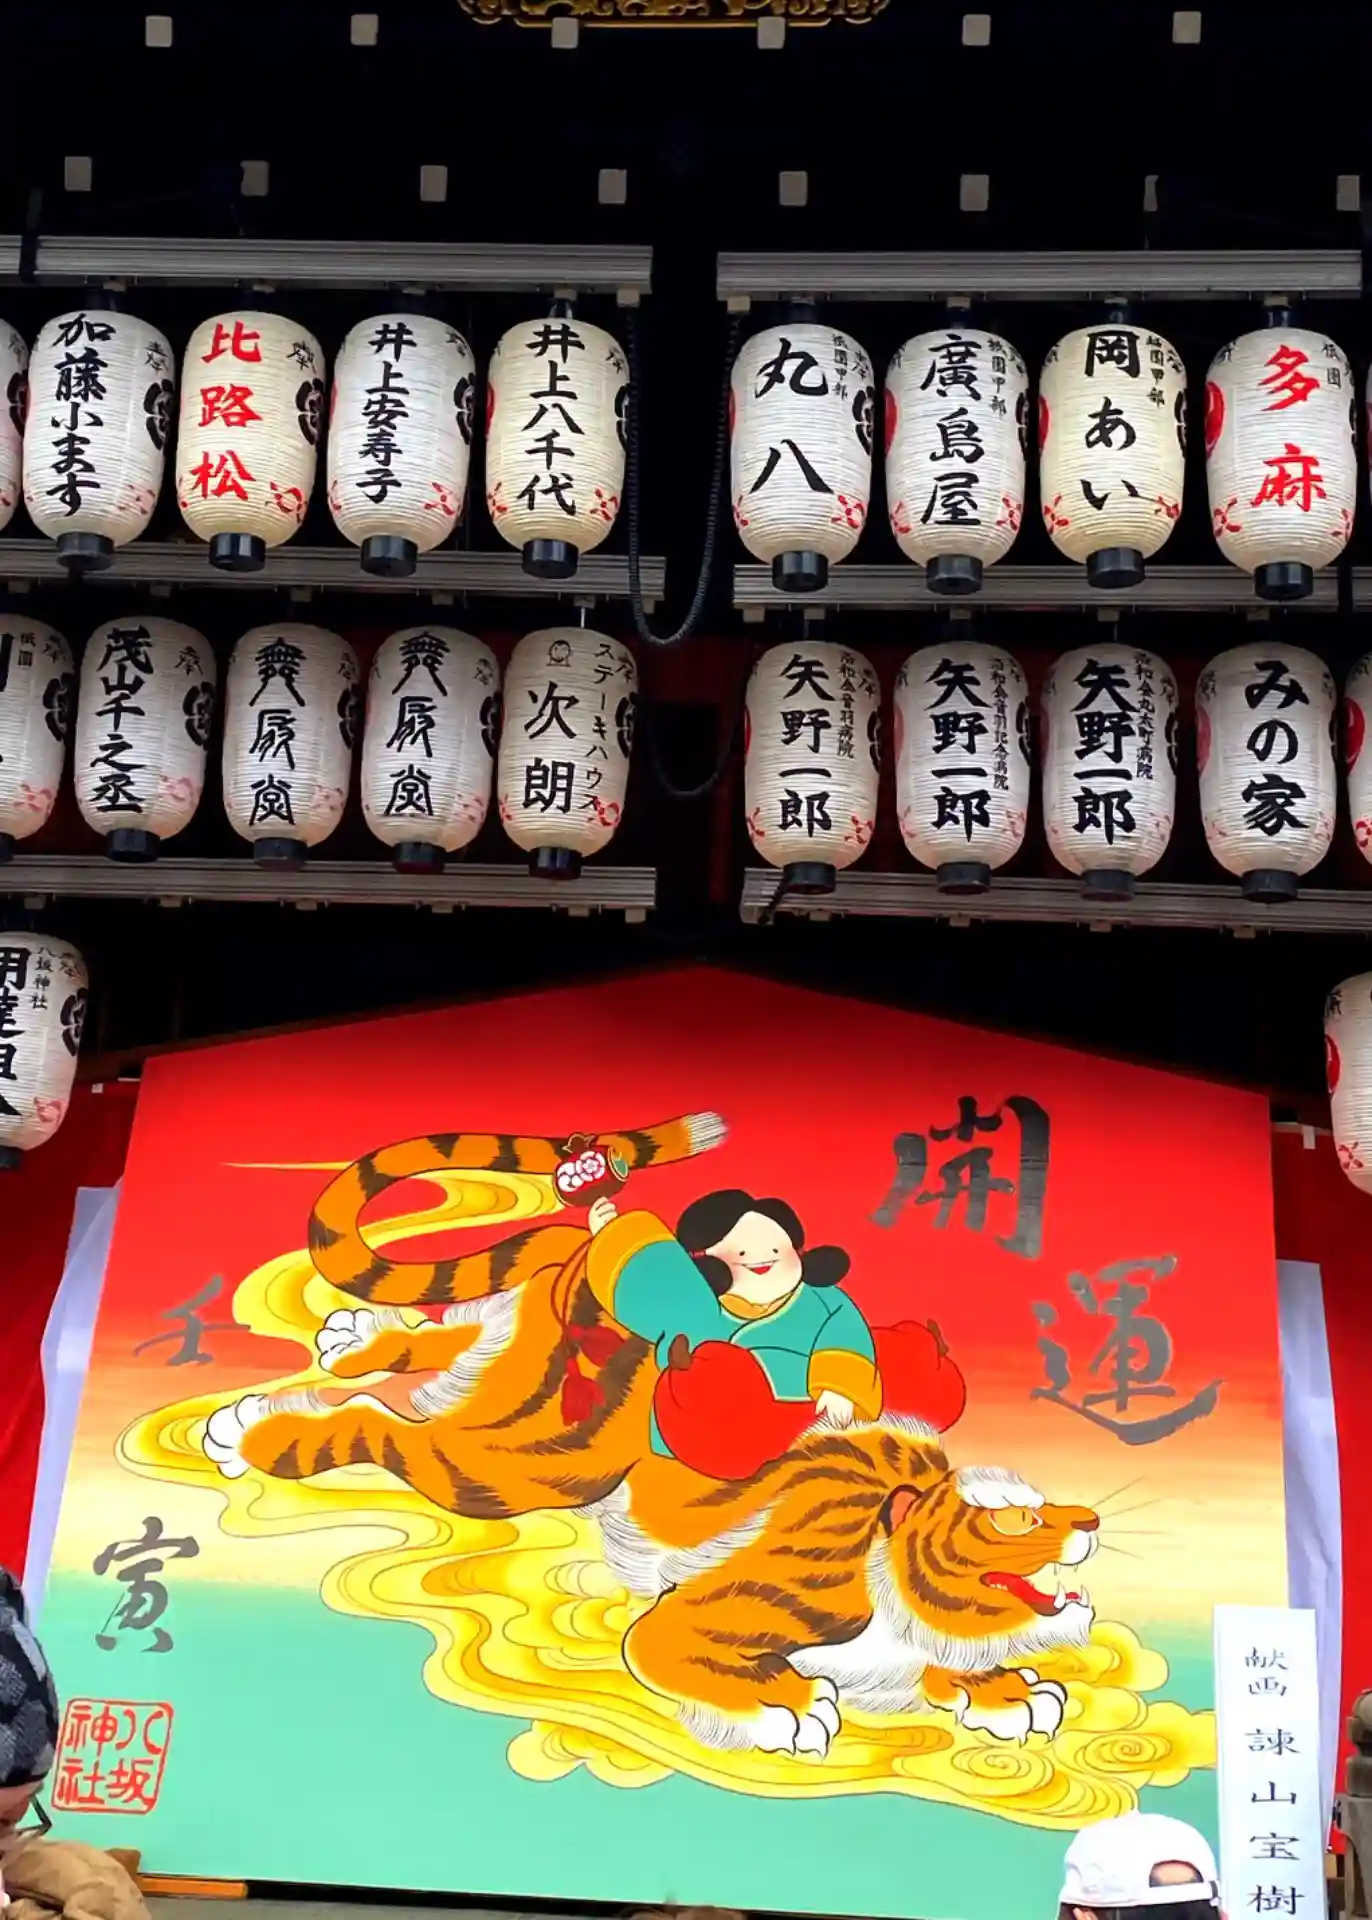 加藤小ます
比路松
井上安寿子
井上八千代
祇園甲部
丸八
祇園甲部
廣島屋
祇園甲部
岡あい
祇園
多麻
祇園
茂山千之丞
舞扇堂
舞扇堂
ステーキハウス
次朗
洛和会音羽病院
矢野一郎
洛和会音羽記念病院
矢野一郎
洛和会丸太町病院
矢野一郎
みの家
八坂神社
開運
壬寅
八坂神社
献画 諫山宝樹